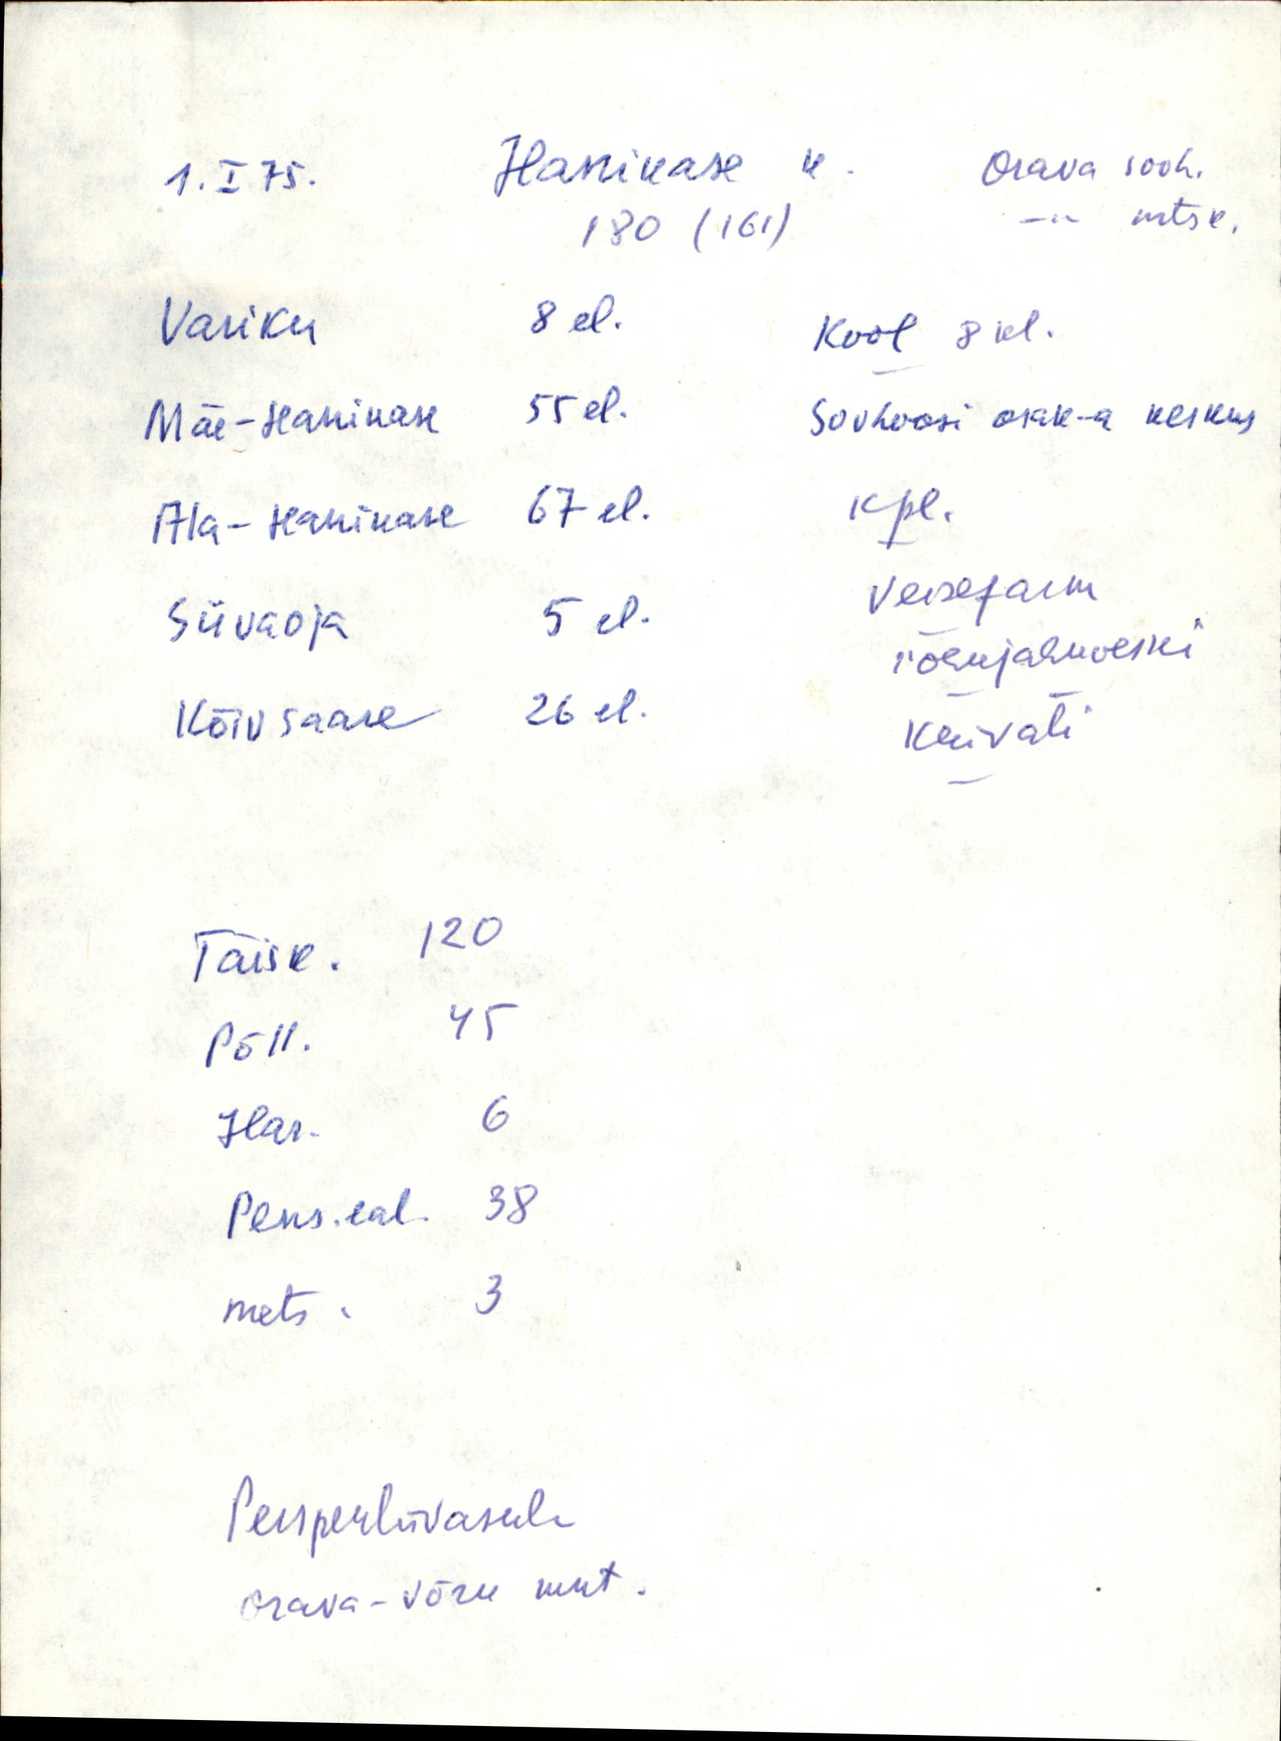 1. I 75. Hanikase k. Orava sovh.
180 (161) —"— mtsk.
Variku 8 el. Kool 8 kl.
Mäe-Hanikase 55 el. Sovhoosi osak-a keskus
Ala-Hanikase 67 el. Kpl.
Siivaoja 5 el. Veisefarm
rõhujahuveski
Kõivsaare 26 el. Kuivati
Täisk. 120
Põll. 45
Har. 6
Pens.eal. 38
mets. 3
Perspektiivasula
Orava-Võru mnt.